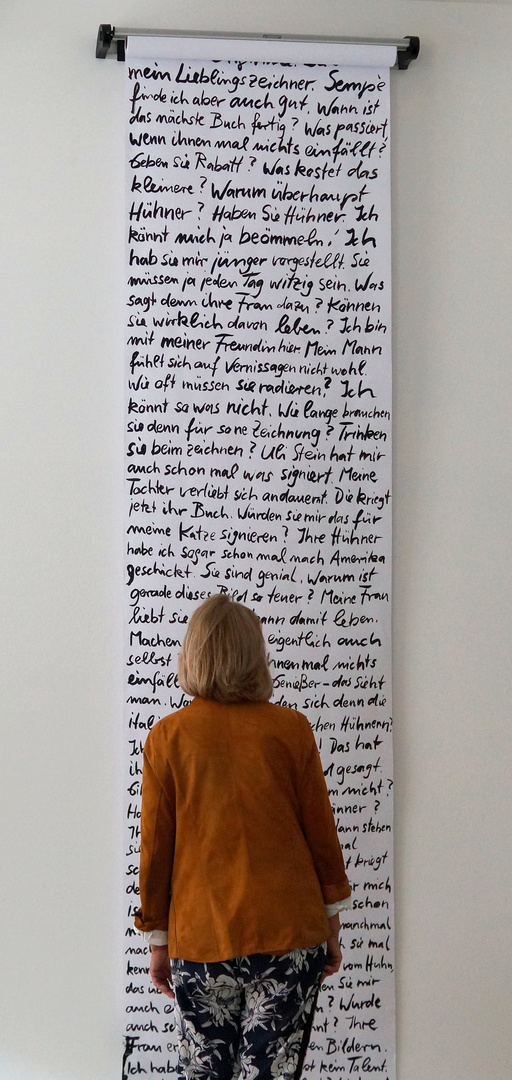 mein Lieblingszeichner. Sempé
finde ich aber auch gut. Wann ist
das nächste Buch fertig? Was passiert,
wenn ihnen mal nichts einfällt?
Geben Sie Rabatt? Was kostet das
kleinere? Warum überhaupt
Hühner? Haben Sie Hühner. Ich
könnt mich ja beömmeln! Ich
hab sie mir jünger vorgestellt. Sie
müssen ja jeden Tag witzig sein. Was
sagt denn ihre Frau dazu? Können
sie wirklich davon leben? Ich bin
mit meiner Freundin hier. Mein Mann
fühlt sich auf Vernissagen nicht wohl.
Wie oft müssen sie radieren? Ich
könnt so was nicht. Wie lange brauchen
sie denn für so ne Zeichnung? Trinken
sie beim zeichnen? Uli Stein hat mir
auch schon mal was signiert. Meine
Tochter verliebt sich andauernt. Die kriegt
jetzt ihr Buch. Würden sie mir das für
meine Katze signieren? Ihre Hühner
habe ich sogar schon mal nach Amerika
geschickt. Sie sind genial. Warum ist
gerade dieses Bild so teuer? Meine Frau
liebt sie damit leben.
Machen eigentlich auch
selbst mal nichts
Genießer - das sieht
man. sich denn die
Hühnern?
! Das hat
gesagt.
nicht?
?
stehen
kriegt
mich
schon
manchmal
sie mal
vom Huhn,
das Sie mir
auch ? Wurde
auch ? Ihre
Frau Bildern.
Ich kein Talent.